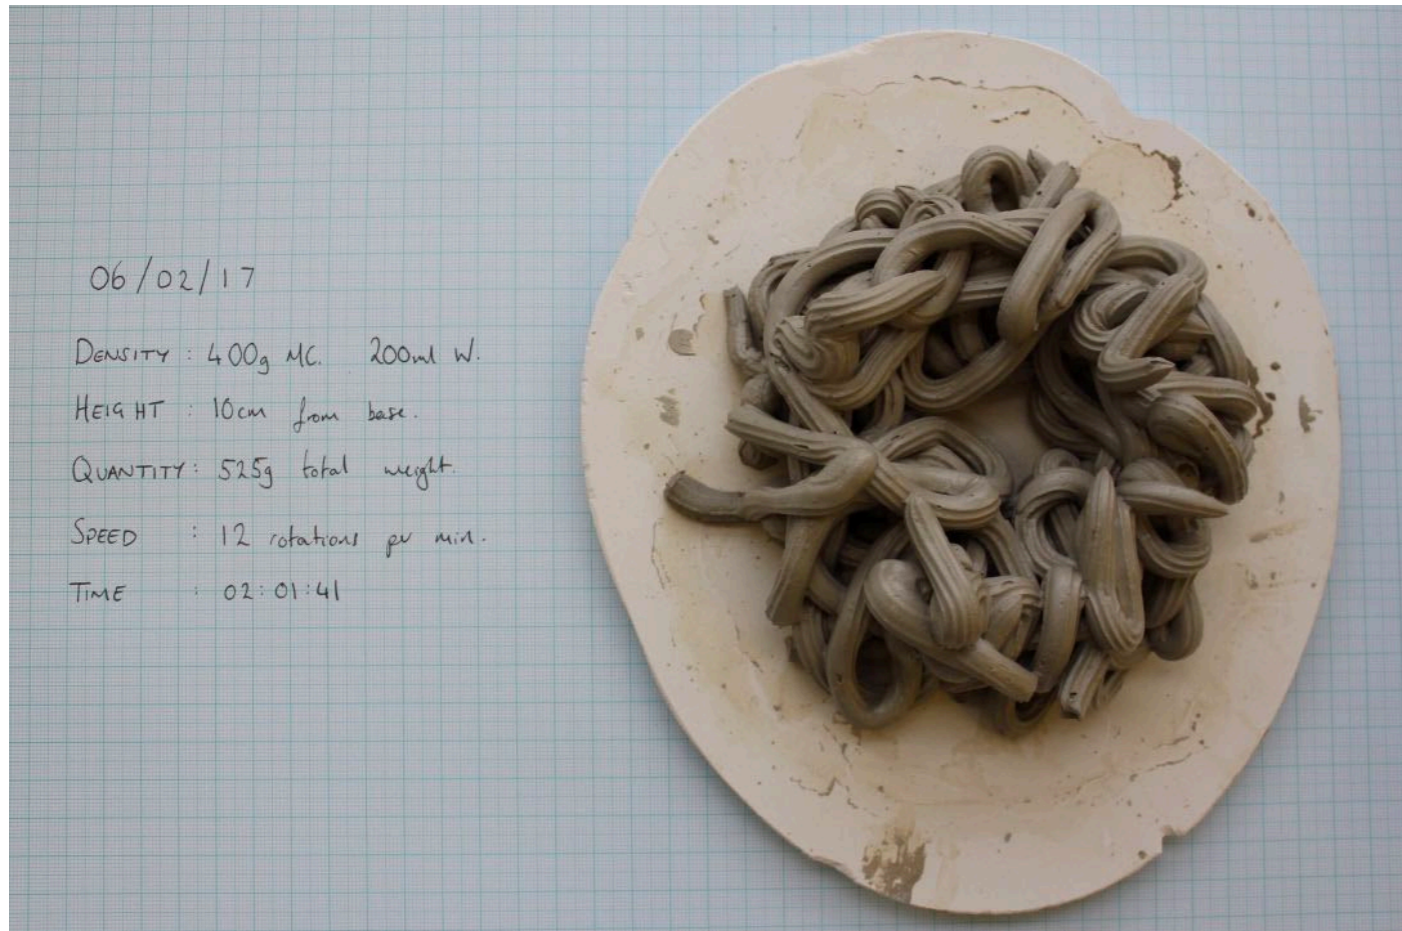 06/02/17
DENSITY : 400g MC. 200ml W.
HEIGHT : 10cm from base.
QUANTITY : 525g total weight.
SPEED : 12 rotations per min.
TIME : 02:01:41